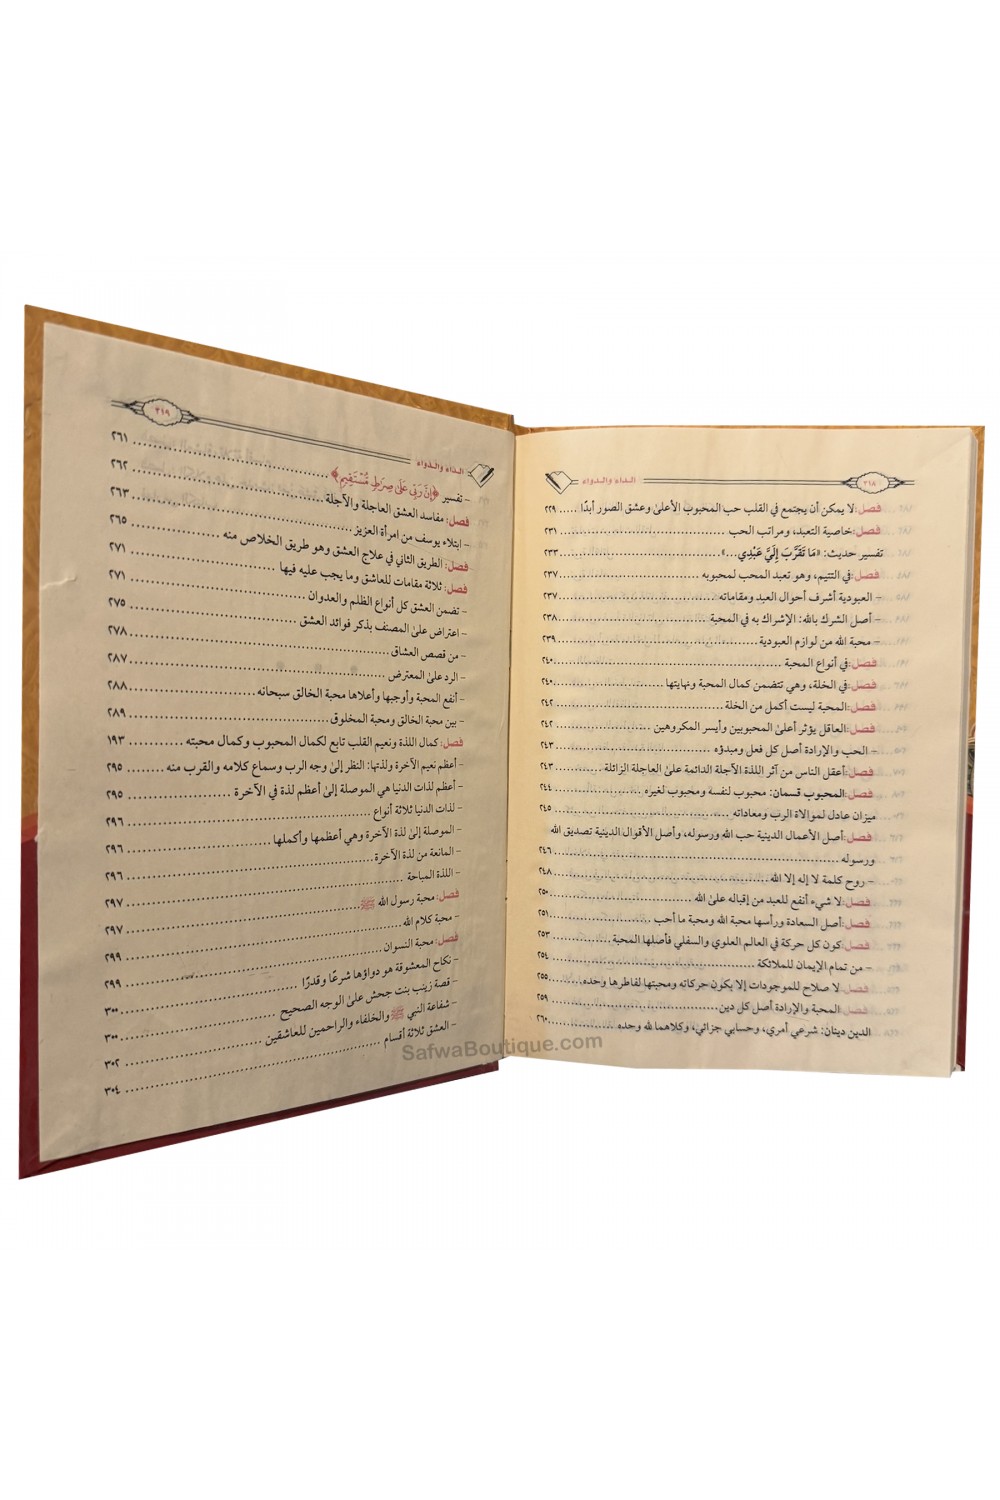 ٣١٨
الداء والدواء
فصل: لا يمكن أن يجتمع في القلب حب المحبوب الأعلى وعشق الصور أبدًا ..... ٢٢٩
فصل: خاصية التعبد، ومراتب الحب ..... ٢٣١
تفسير حديث: «مَا تَقَرَّبَ إِلَيَّ عَبْدِي...» ..... ٢٣٣
فصل: في التتيم، وهو تعبد المحب لمحبوبه ..... ٢٣٧
- العبودية أشرف أحوال العبد ومقاماته ..... ٢٣٧
- أصل الشرك بالله: الإشراك به في المحبة ..... ٢٣٨
- محبة الله من لوازم العبودية ..... ٢٣٩
فصل: في أنواع المحبة ..... ٢٤٠
فصل: في الخلة، وهي تتضمن كمال المحبة ونهايتها ..... ٢٤٠
فصل: المحبة ليست أكمل من الخلة ..... ٢٤٢
فصل: العاقل يؤثر أعلى المحبوبين وأيسر المكروهين ..... ٢٤٢
- الحب والإرادة أصل كل فعل ومبدؤه ..... ٢٤٣
فصل: أعقل الناس من آثر اللذة الآجلة الدائمة على العاجلة الزائلة ..... ٢٤٣
فصل: المحبوب قسمان: محبوب لنفسه ومحبوب لغيره ..... ٢٤٤
ميزان عادل لموالاة الرب ومعاداته ..... ٢٤٥
فصل: أصل الأعمال الدينية حب الله ورسوله، وأصل الأقوال الدينية تصديق الله
ورسوله ..... ٢٤٦
- روح كلمة لا إله إلا الله ..... ٢٤٨
فصل: لا شيء أنفع للعبد من إقباله على الله ..... ٢٥٠
فصل: أصل السعادة ورأسها محبة الله ومحبة ما أحب ..... ٢٥١
فصل: كون كل حركة في العالم العلوي والسفلي فأصلها المحبة ..... ٢٥٣
- من تمام الإيمان للملائكة ..... ٢٥٤
فصل: لا صلاح للموجودات إلا بكون حركاته ومحبتها لفاطرها وحده ..... ٢٥٥
فصل: المحبة والإرادة أصل كل دين ..... ٢٥٩
الدين دينان: شرعي أمري، وحسابي جزائي، وكلاهما لله وحده ..... ٢٦٠
الداء والدواء
٣١٩
- تفسير ﴿إِنَّ رَبِّي عَلَىٰ صِرَاطٍ مُّسْتَقِيمٍ﴾ ..... ٢٦١
فصل: مفاسد العشق العاجلة والآجلة ..... ٢٦٢
- ابتلاء يوسف من امرأة العزيز ..... ٢٦٣
فصل: الطريق الثاني في علاج العشق وهو طريق الخلاص منه ..... ٢٦٥
فصل: ثلاثة مقامات للعاشق وما يجب عليه فيها ..... ٢٧١
- تضمن العشق كل أنواع الظلم والعدوان ..... ٢٧١
- اعتراض على المصنف بذكر فوائد العشق ..... ٢٧٥
- من قصص العشاق ..... ٢٧٨
- الرد على المعترض ..... ٢٨٧
- أنفع المحبة وأوجبها وأعلاها محبة الخالق سبحانه ..... ٢٨٨
- بين محبة الخالق ومحبة المخلوق ..... ٢٨٩
فصل: كمال اللذة ونعيم القلب تابع لكمال المحبوب وكمال محبته ..... ١٩٣
- أعظم نعيم الآخرة ولذتها: النظر إلى وجه الرب وسماع كلامه والقرب منه ..... ٢٩٥
- أعظم لذات الدنيا هي الموصلة إلى أعظم لذة في الآخرة ..... ٢٩٥
- لذات الدنيا ثلاثة أنواع ..... ٢٩٦
- الموصلة إلى لذة الآخرة وهي أعظمها وأكملها ..... ٢٩٦
- المانعة من لذة الآخرة ..... ٢٩٦
- اللذة المباحة ..... ٢٩٧
فصل: محبة رسول الله ﷺ ..... ٢٩٧
- محبة كلام الله ..... ٢٩٩
فصل: محبة النسوان ..... ٢٩٩
- نكاح المعشوقة هو دواؤها شرعًا وقدرًا ..... ٣٠٠
- قصة زينب بنت جحش على الوجه الصحيح ..... ٣٠٠
- شفاعة النبي ﷺ والخلفاء والراحمين للعاشقين ..... ٣٠٢
- العشق ثلاثة أقسام ..... ٣٠٤
SafwaBoutique.com